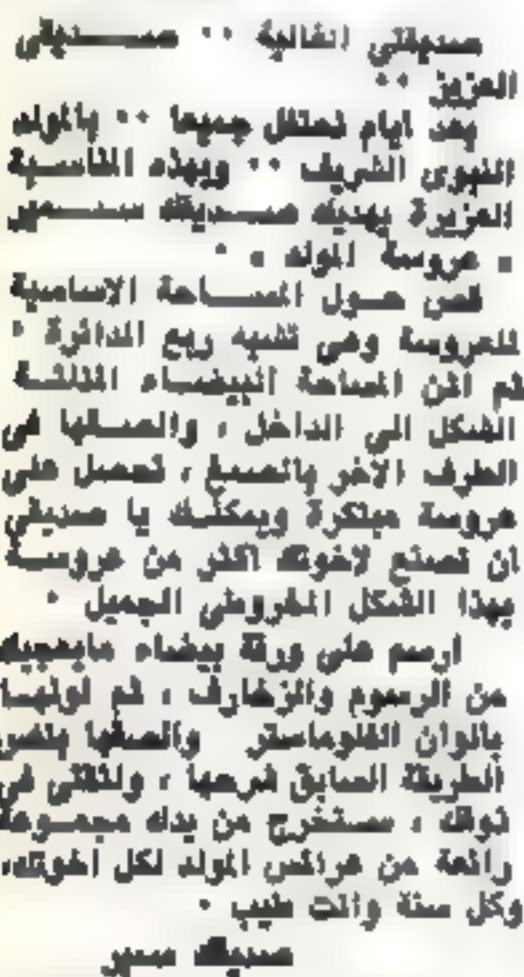 صديقتي الغالية ·· صديقي
العزيز ··
بعد ايام نحتفل جميعا ·· بالمولد
النبوى الشريف ·· وبهذه المناسبة
العزيزة يهديك صديقك سمير
« عروسة المولد » ·
قص حول المساحة الاساسية
للعروسة وهى تشبه ربع الدائرة ·
ثم اثن المساحة البيضاء المثلثة
الشكل الي الداخل ، والصقها فى
الطرف الآخر بالصمغ ، تحصل على
عروسة مبتكرة ويمكنك يا صديقي
ان تصنع لاخوتك اكثر من عروسة
بهذا الشكل المخروطى الجميل ·
ارسم على ورقة بيضاء مايعجبك
من الرسوم والزخارف ، ثم لونها
بالوان الفلوماستر والصقها بنفس
الطريقة السابق شرحها ، ولثقتى فى
ذوقك ، ستخرج من يدك مجموعة
رائعة من عرائس المولد لكل اخوتك،
وكل سنة وانت طيب ·
صديقك سمير